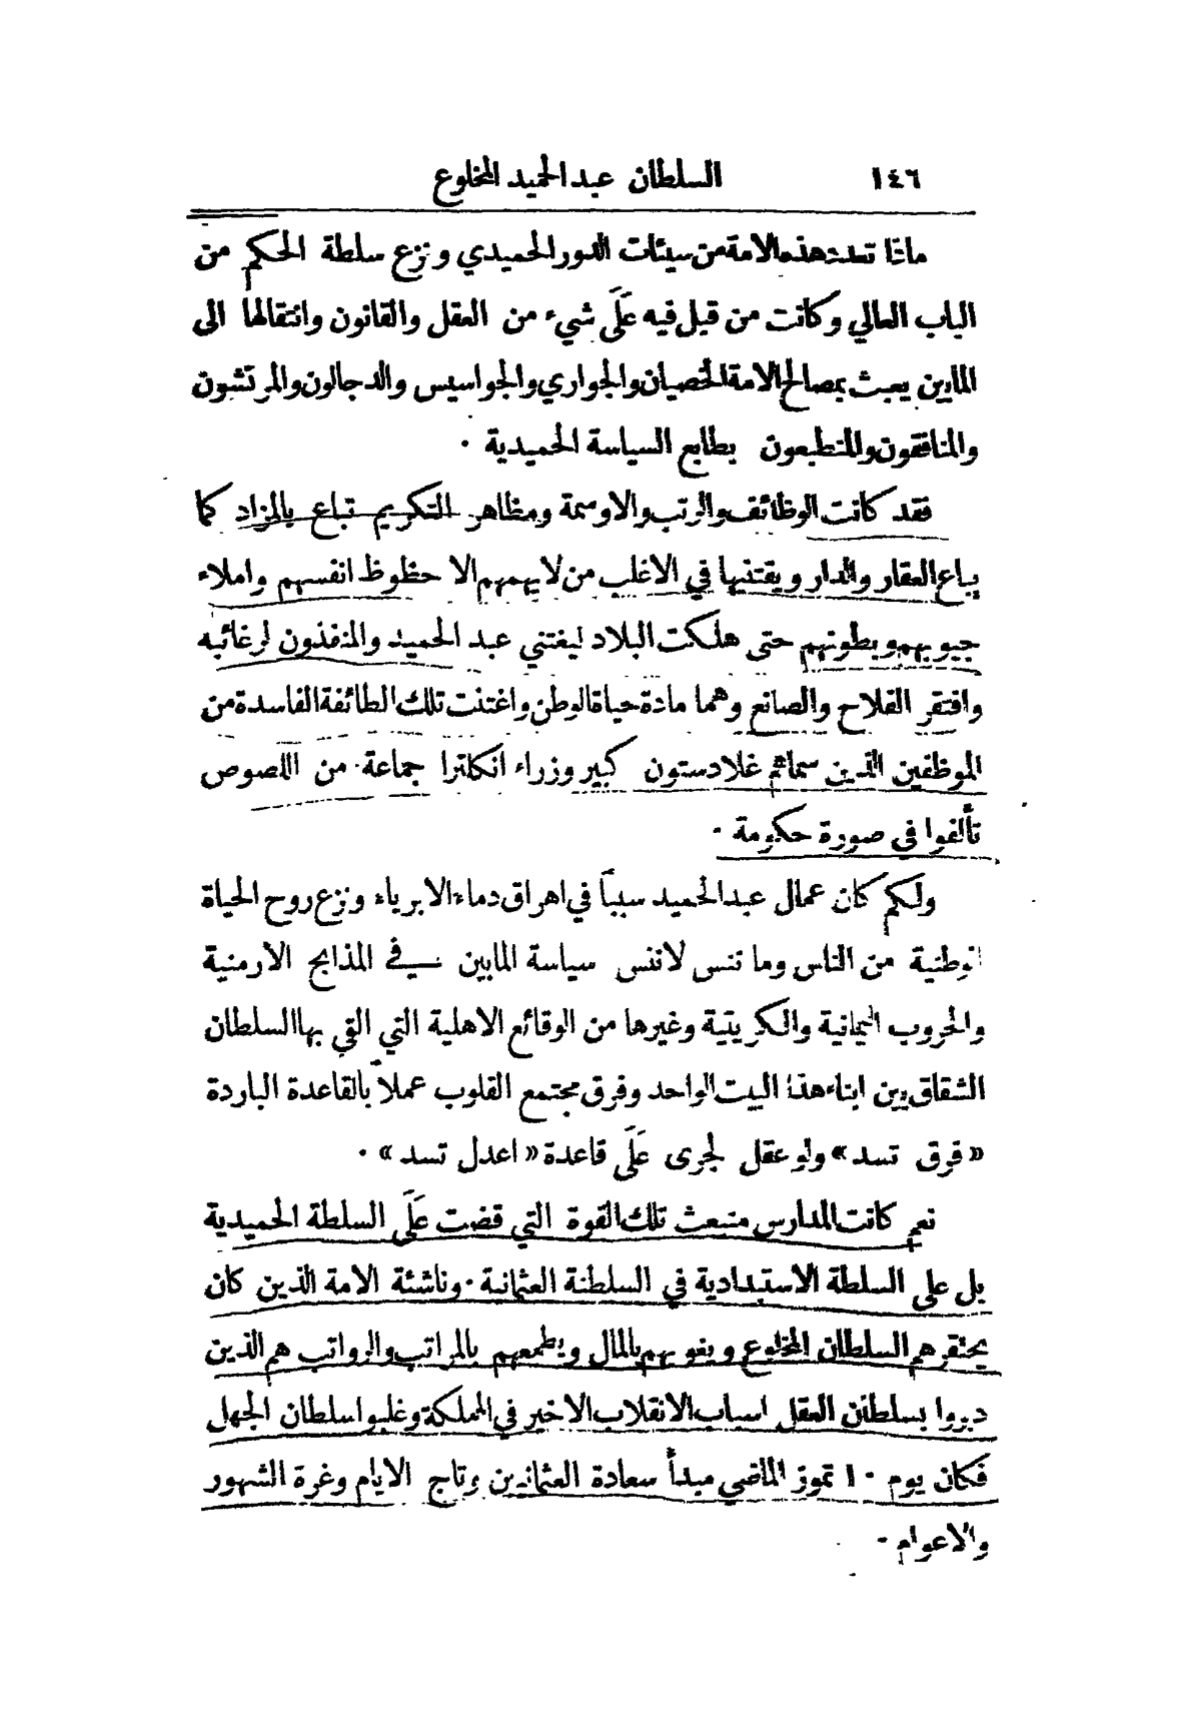 ١٤٦ السلطان عبد الحميد المخلوع
ماذا تعدد هذه الامة من سيئات الدور الحميدي ونزع سلطة الحكم من
الباب العالي وكانت من قبل فيه عَلَى شيء من العقل والقانون وانتقالها الى
المابين يعبث بمصالح الامة الخصيان والجواري والجواسيس والدجالون والمرتشون
والمنافقون والمنطبعون بطابع السياسة الحميدية ٠
فقد كانت الوظائف والرتب والاوسمة ومظاهر التكريم تباع بالمزاد كما
يباع العقار والدار ويقتنيها في الاغلب من لا يهمهم الا حظوظ انفسهم واملاء
جيوبهم وبطونهم حتى هلكت البلاد ليغتني عبد الحميد والمنفذون لرغائبه
وافتقر الفلاح والصانع وهما مادة حياة الوطن واغتنت تلك الطائفة الفاسدة من
الموظفين الذين سماهم غلادستون كبير وزراء انكلترا جماعة من اللصوص
تألفوا في صورة حكومة ٠
ولكم كان عمال عبد الحميد سبباً في اهراق دماء الابرياء ونزع روح الحياة
الوطنية من الناس وما ننس لا ننس سياسة المابين في المذابح الارمنية
والحروب اليمانية والكريتية وغيرها من الوقائع الاهلية التي القى بها السلطان
الشقاق بين ابناء هذا البيت الواحد وفرق مجتمع القلوب عملاً بالقاعدة الباردة
«فرق تسد» ولو عقل لجرى عَلَى قاعدة «اعدل تسد» ٠
نعم كانت المدارس منبعث تلك القوة التي قضت عَلَى السلطة الحميدية
بل على السلطة الاستبدادية في السلطنة العثمانية ٠ وناشئة الامة الذين كان
يحتقرهم السلطان المخلوع ويغويهم بالمال ويطمعهم بالمراتب والرواتب هم الذين
دبروا بسلطان العقل اسباب الانقلاب الاخير في المملكة وغلبوا سلطان الجهل
فكان يوم ١٠ تموز الماضي مبدأ سعادة العثمانيين وتاج الايام وغرة الشهور
والاعوام ٠